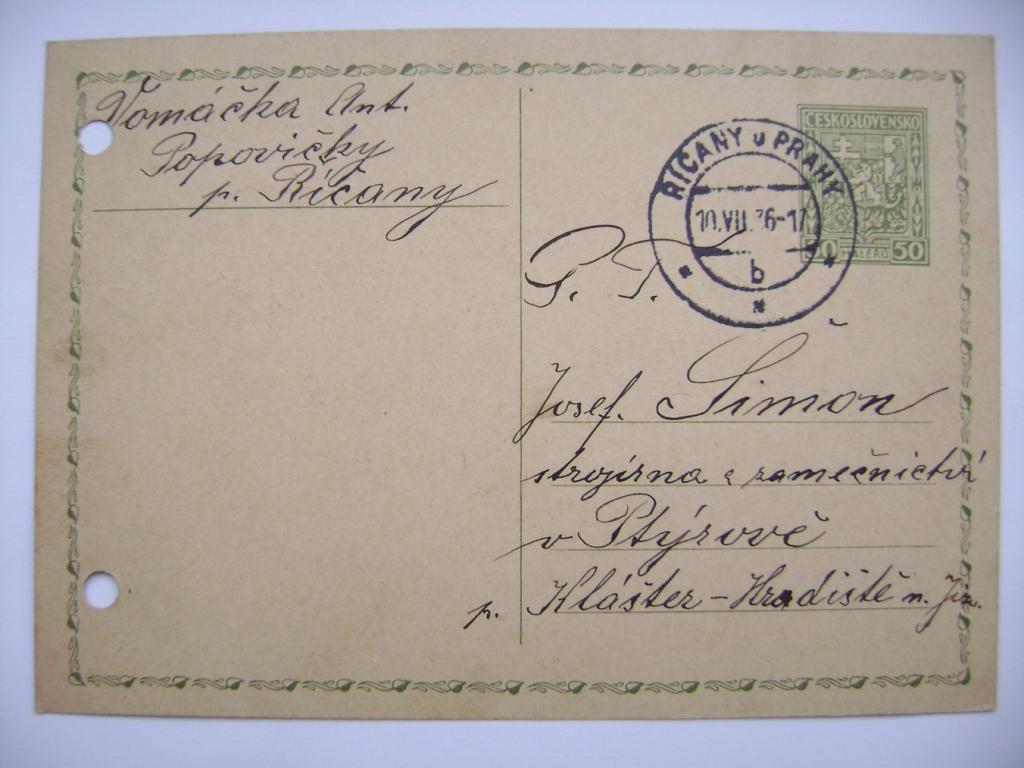 Vomáčka Ant.
Popovičky
p. Říčany
ČESKOSLOVENSKO
50 HALÉŘŮ 50
ŘÍČANY u PRAHY
10.VII.36-17
b
P. T.
Josef. Šimon
strojírna a zamečnictví
v Ptýrově
p. Klášter-Hradiště n. Jiz.